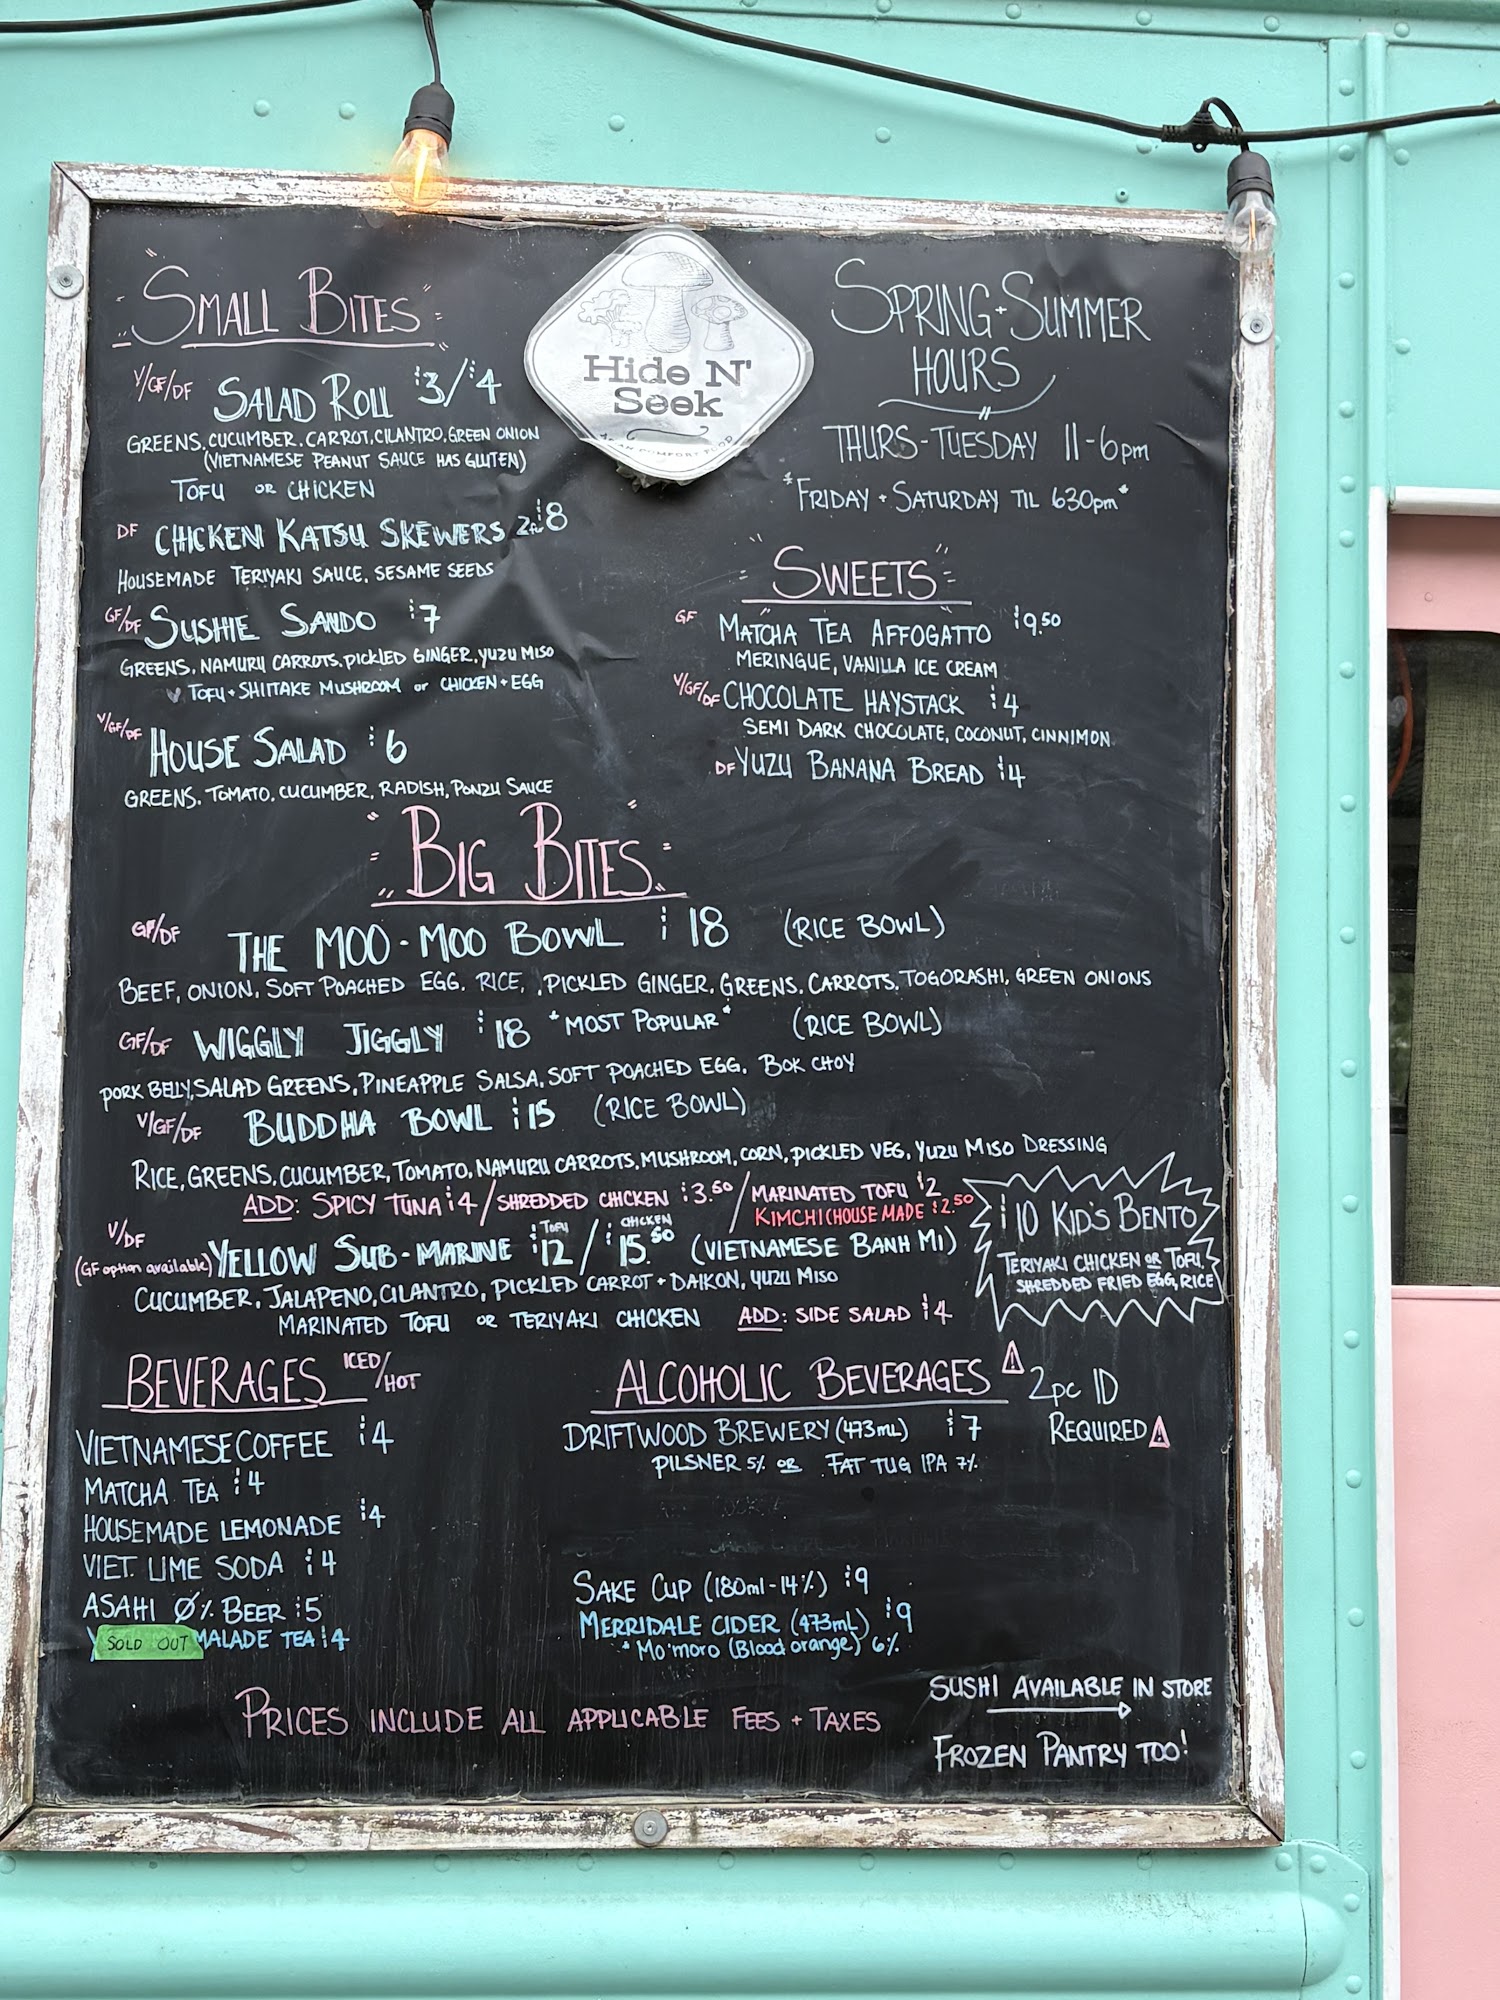 SMALL BITES
V/GF/DF SALAD ROLL $3/$4
GREENS, CUCUMBER, CARROT, CILANTRO, GREEN ONION
(VIETNAMESE PEANUT SAUCE HAS GLUTEN)
TOFU OR CHICKEN
DF CHICKEN KATSU SKEWERS 2 $8
HOUSEMADE TERIYAKI SAUCE, SESAME SEEDS
GF/DF SUSHIE SANDO $7
GREENS, NAMURU CARROTS, PICKLED GINGER, YUZU MISO
V TOFU + SHIITAKE MUSHROOM or CHICKEN + EGG
V/GF/DF HOUSE SALAD $6
GREENS, TOMATO, CUCUMBER, RADISH, PONZU SAUCE
Hide N'
Seek
COMFORT FOOD
SPRING + SUMMER
HOURS
THURS - TUESDAY 11-6pm
*FRIDAY + SATURDAY TIL 630pm*
SWEETS
GF MATCHA TEA AFFOGATTO $9.50
MERINGUE, VANILLA ICE CREAM
V/GF/DF CHOCOLATE HAYSTACK $4
SEMI DARK CHOCOLATE, COCONUT, CINNIMON
DF YUZU BANANA BREAD $4
BIG BITES
GF/DF THE MOO-MOO BOWL $18 (RICE BOWL)
BEEF, ONION, SOFT POACHED EGG, RICE, PICKLED GINGER, GREENS, CARROTS, TOGORASHI, GREEN ONIONS
GF/DF WIGGLY JIGGLY $18 *MOST POPULAR* (RICE BOWL)
PORK BELLY, SALAD GREENS, PINEAPPLE SALSA, SOFT POACHED EGG, BOK CHOY
V/GF/DF BUDDHA BOWL $15 (RICE BOWL)
RICE, GREENS, CUCUMBER, TOMATO, NAMURU CARROTS, MUSHROOM, CORN, PICKLED VEG, YUZU MISO DRESSING
ADD: SPICY TUNA $4 / SHREDDED CHICKEN $3.50 / MARINATED TOFU $2
KIMCHI (HOUSE MADE $2.50
V/DF (GF option available) YELLOW SUB-MARINE TOFU $12 / CHICKEN $15.50 (VIETNAMESE BANH MI)
CUCUMBER, JALAPENO, CILANTRO, PICKLED CARROT + DAIKON, YUZU MISO
MARINATED TOFU OR TERIYAKI CHICKEN ADD: SIDE SALAD $4
$10 KID'S BENTO
TERIYAKI CHICKEN OR TOFU,
SHREDDED FRIED EGG, RICE
BEVERAGES ICED/HOT
VIETNAMESE COFFEE $4
MATCHA TEA $4
HOUSEMADE LEMONADE $4
VIET. LIME SODA $4
ASAHI 0% BEER $5
SOLD OUT MALADE TEA $4
ALCOHOLIC BEVERAGES ! 2pc ID
REQUIRED !
DRIFTWOOD BREWERY (473mL) $7
PILSNER 5% OR FAT TUG IPA 7%
SAKE CUP (180ml - 14%) $9
MERRIDALE CIDER (473mL) $9
* Mo'moro (Blood orange) 6%
PRICES INCLUDE ALL APPLICABLE FEES + TAXES
SUSHI AVAILABLE IN STORE
FROZEN PANTRY TOO!